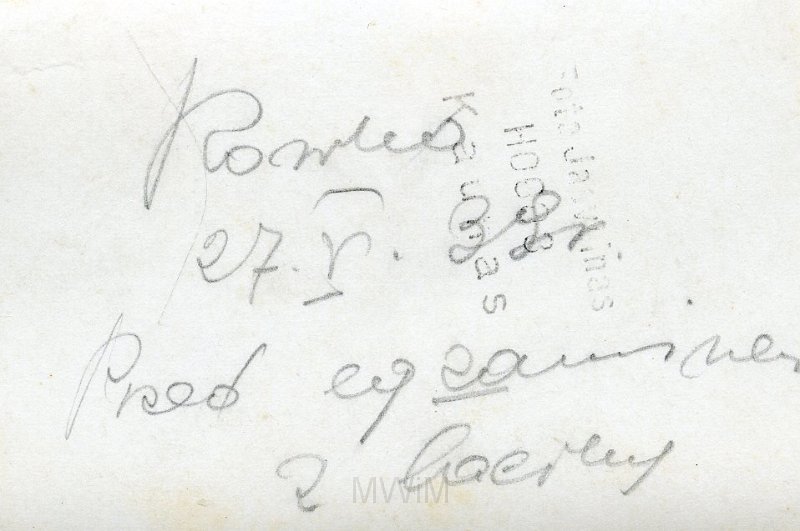 Kowno
27. V. 39 r
Przed egzaminem
z łaciny
Foto Jasvoinas
Kaunas
MWiM